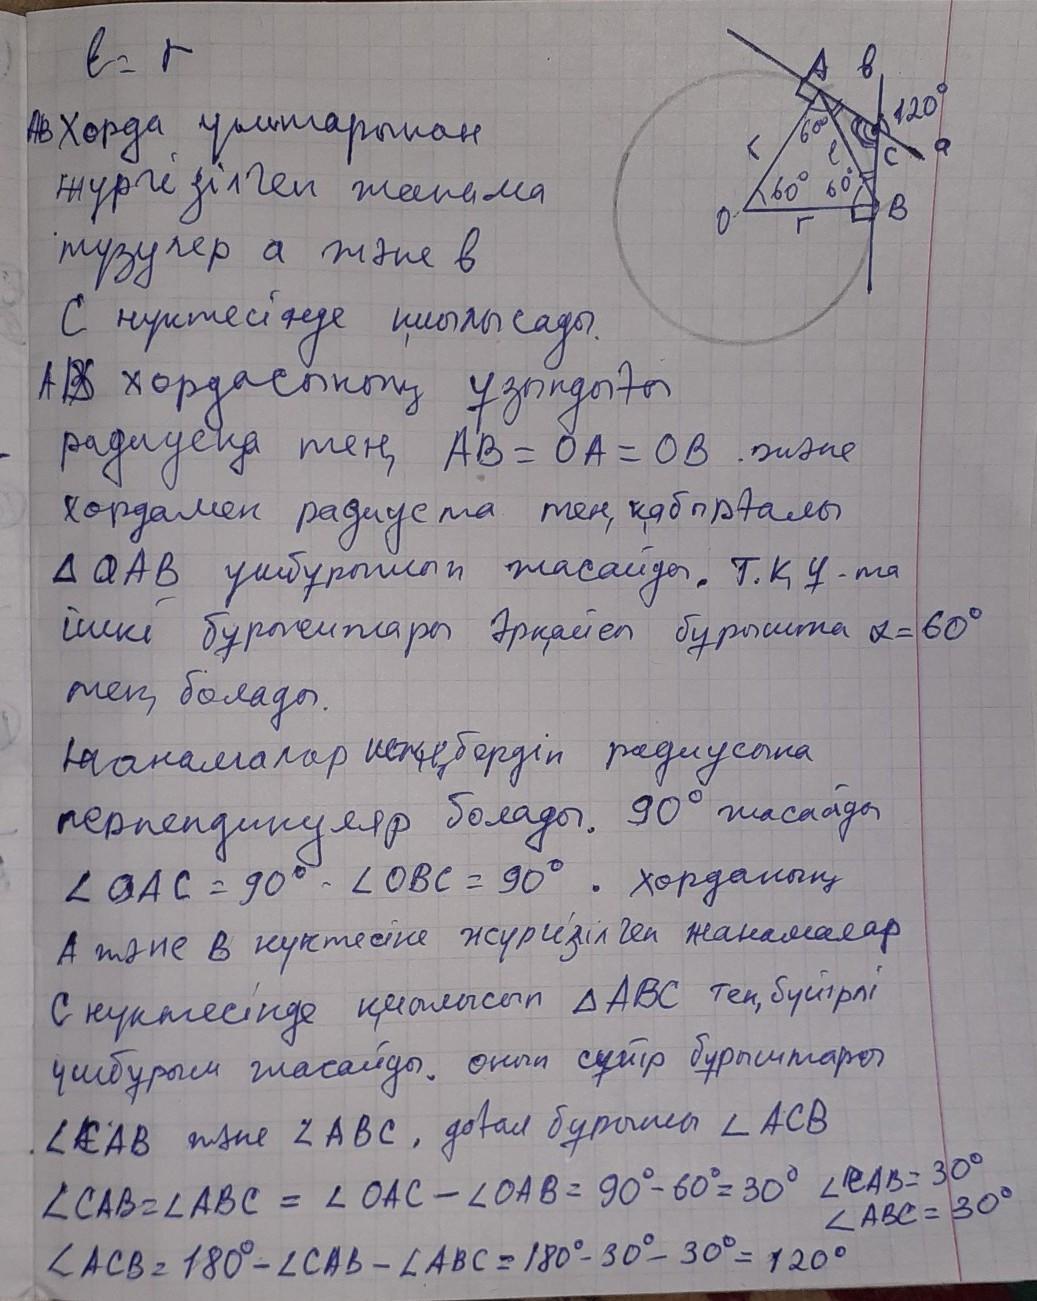 ℓ = r
A b 120°
60° r ℓ C a
O 60° 60° B
r
AB Хорда ұштарынан
жүргізілген жанама
түзулер a және b
C нүктесінде қиылысады.
AB хордасының ұзындығы
радиусқа тең, AB = OA = OB. және
хордамен радиуста тең қабырғалы
△OAB үшбұрышын жасайды. Т.Қ.Ү-та
ішкі бұрыштары әрқайсы бұрышта α = 60°
тең болады.
Жанамалар шеңбердің радиусына
перпендикуляр болады. 90° жасайды
∠OAC = 90° - ∠OBC = 90°. хорданың
A және B нүктесіне жүргізілген жанамалар
C нүктесінде қиылысып △ABC тең бүйірлі
үшбұрыш жасайды. оның сүйір бұрыштары
∠CAB және ∠ABC, доғал бұрышы ∠ACB
∠CAB = ∠ABC = ∠OAC - ∠OAB = 90° - 60° = 30° ∠CAB = 30°
∠ABC = 30°
∠ACB = 180° - ∠CAB - ∠ABC = 180° - 30° - 30° = 120°